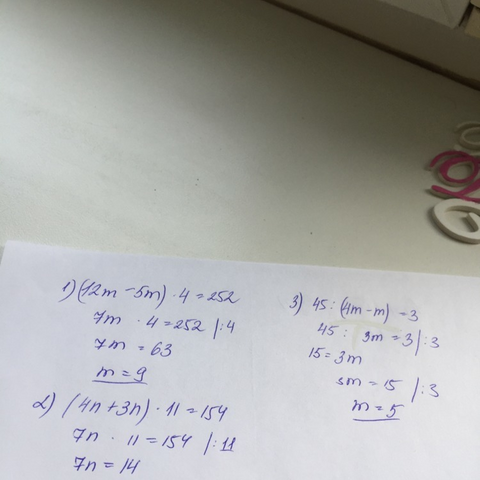 1) (12m - 5m) · 4 = 252
7m · 4 = 252 |:4
7m = 63
m = 9
2) (4n + 3n) · 11 = 154
7n · 11 = 154 |:11
7n = 14
3) 45 : (4m - m) = 3
45 : 3m = 3 |:3
15 = 3m
3m = 15 |:3
m = 5